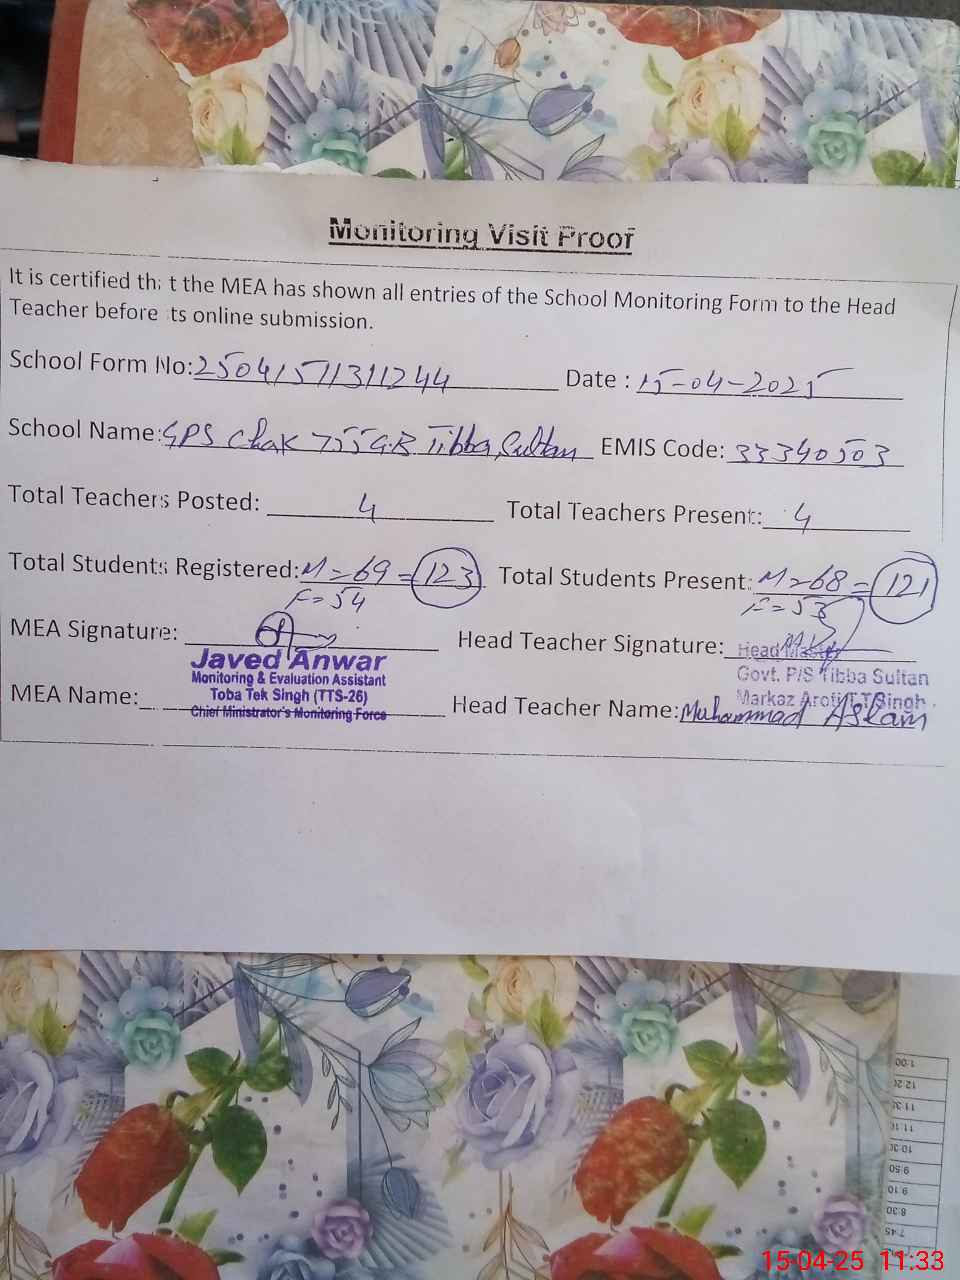 Monitoring Visit Proof
It is certified that the MEA has shown all entries of the School Monitoring Form to the Head
Teacher before its online submission.
School Form No: 250415711311244 Date : 15-04-2025
School Name: GPS Chak 755 GB Tibba Sultan EMIS Code: 33340503
Total Teachers Posted: 4 Total Teachers Present: 4
Total Students Registered: M=69 = 123 Total Students Present: M=68 = 121
F=54 F=53
MEA Signature: Head Teacher Signature:
Javed Anwar Head Master
Monitoring & Evaluation Assistant Govt. P/S Tibba Sultan
Toba Tek Singh (TTS-26) Markaz Aroti T.T.Singh
Chief Ministrator's Monitoring Force
MEA Name: Head Teacher Name: Muhammad Aslam
1:00
11:10
10:30
9:50
9:10
8:30
7:45
15-04-25 11:33